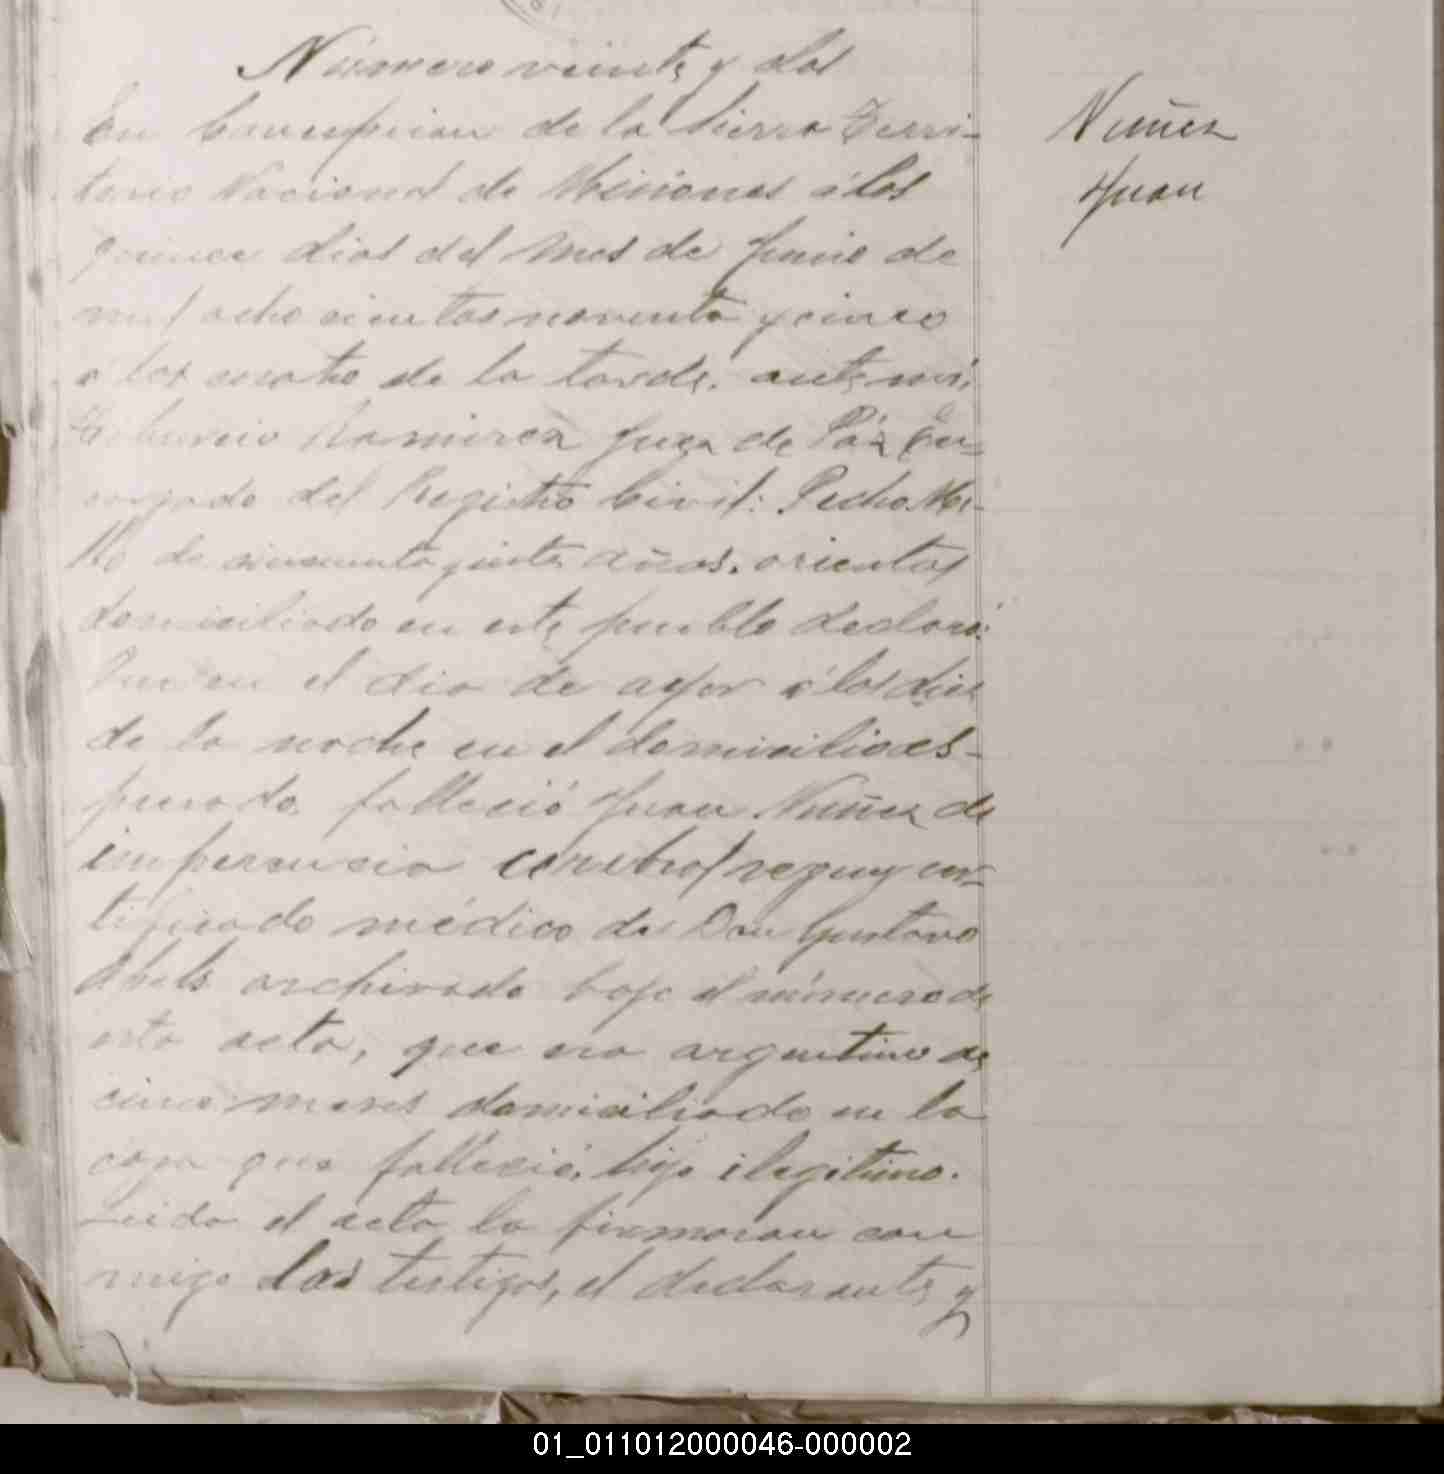 Número veinte y dos
En Concepcion de la Sierra Terri-
torio Nacional de Misiones á los
quince dias del mes de Junio de
mil ocho cientos noventa y cinco
á las cuatro de la tarde, ante mí,
Tiburcio Ramirez Juez de Páz En-
cargado del Registro Civil: Pedro Me-
llo de cincuenta y siete años, oriental
domiciliado en este pueblo declaró:
Que en el dia de ayer á las diez
de la noche en el domicilio es-
presado, falleció Juan Nuñez de
cerebral segun cer-
tificado médico de Don Gustavo
archivado bajo el número de
esta acta, que era argentino de
cinco meses domiciliado en la
casa que falleció, hijo ilegitimo.
Leida el acta la firmaron con
migo los testigos, el declarante y
Nuñez
Juan
01_011012000046-000002